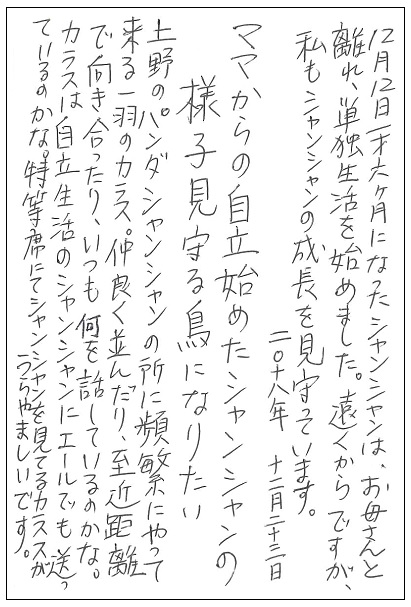 12月12日一才六ヶ月になったシャンシャンは、お母さんと
離れ、単独生活を始めました。遠くからですが、
私もシャンシャンの成長を見守っています。
二〇十八年 十二月二十三日
ママからの自立始めたシャンシャンの
様子見守る鳥になりたい
上野のパンダシャンシャンの所に頻繁にやって
来る一羽のカラス。仲良く並んだり、至近距離
で向き合ったり、いつも何を話しているのかな。
カラスは自立生活のシャンシャンにエールでも送っ
ているのかな。特等席にてシャンシャンを見てるカラスが
うらやましいです。